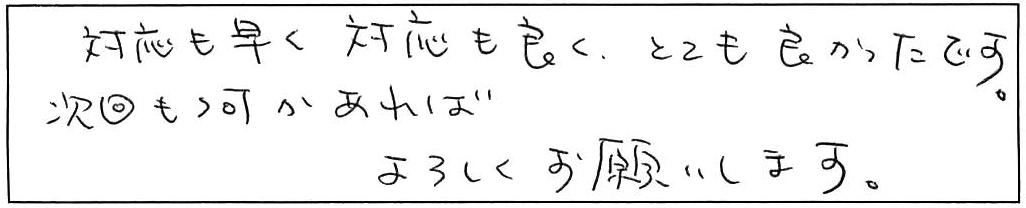 対応も早く 対応も良く、とても良かったです。
次回も何かあれば
よろしくお願いします。